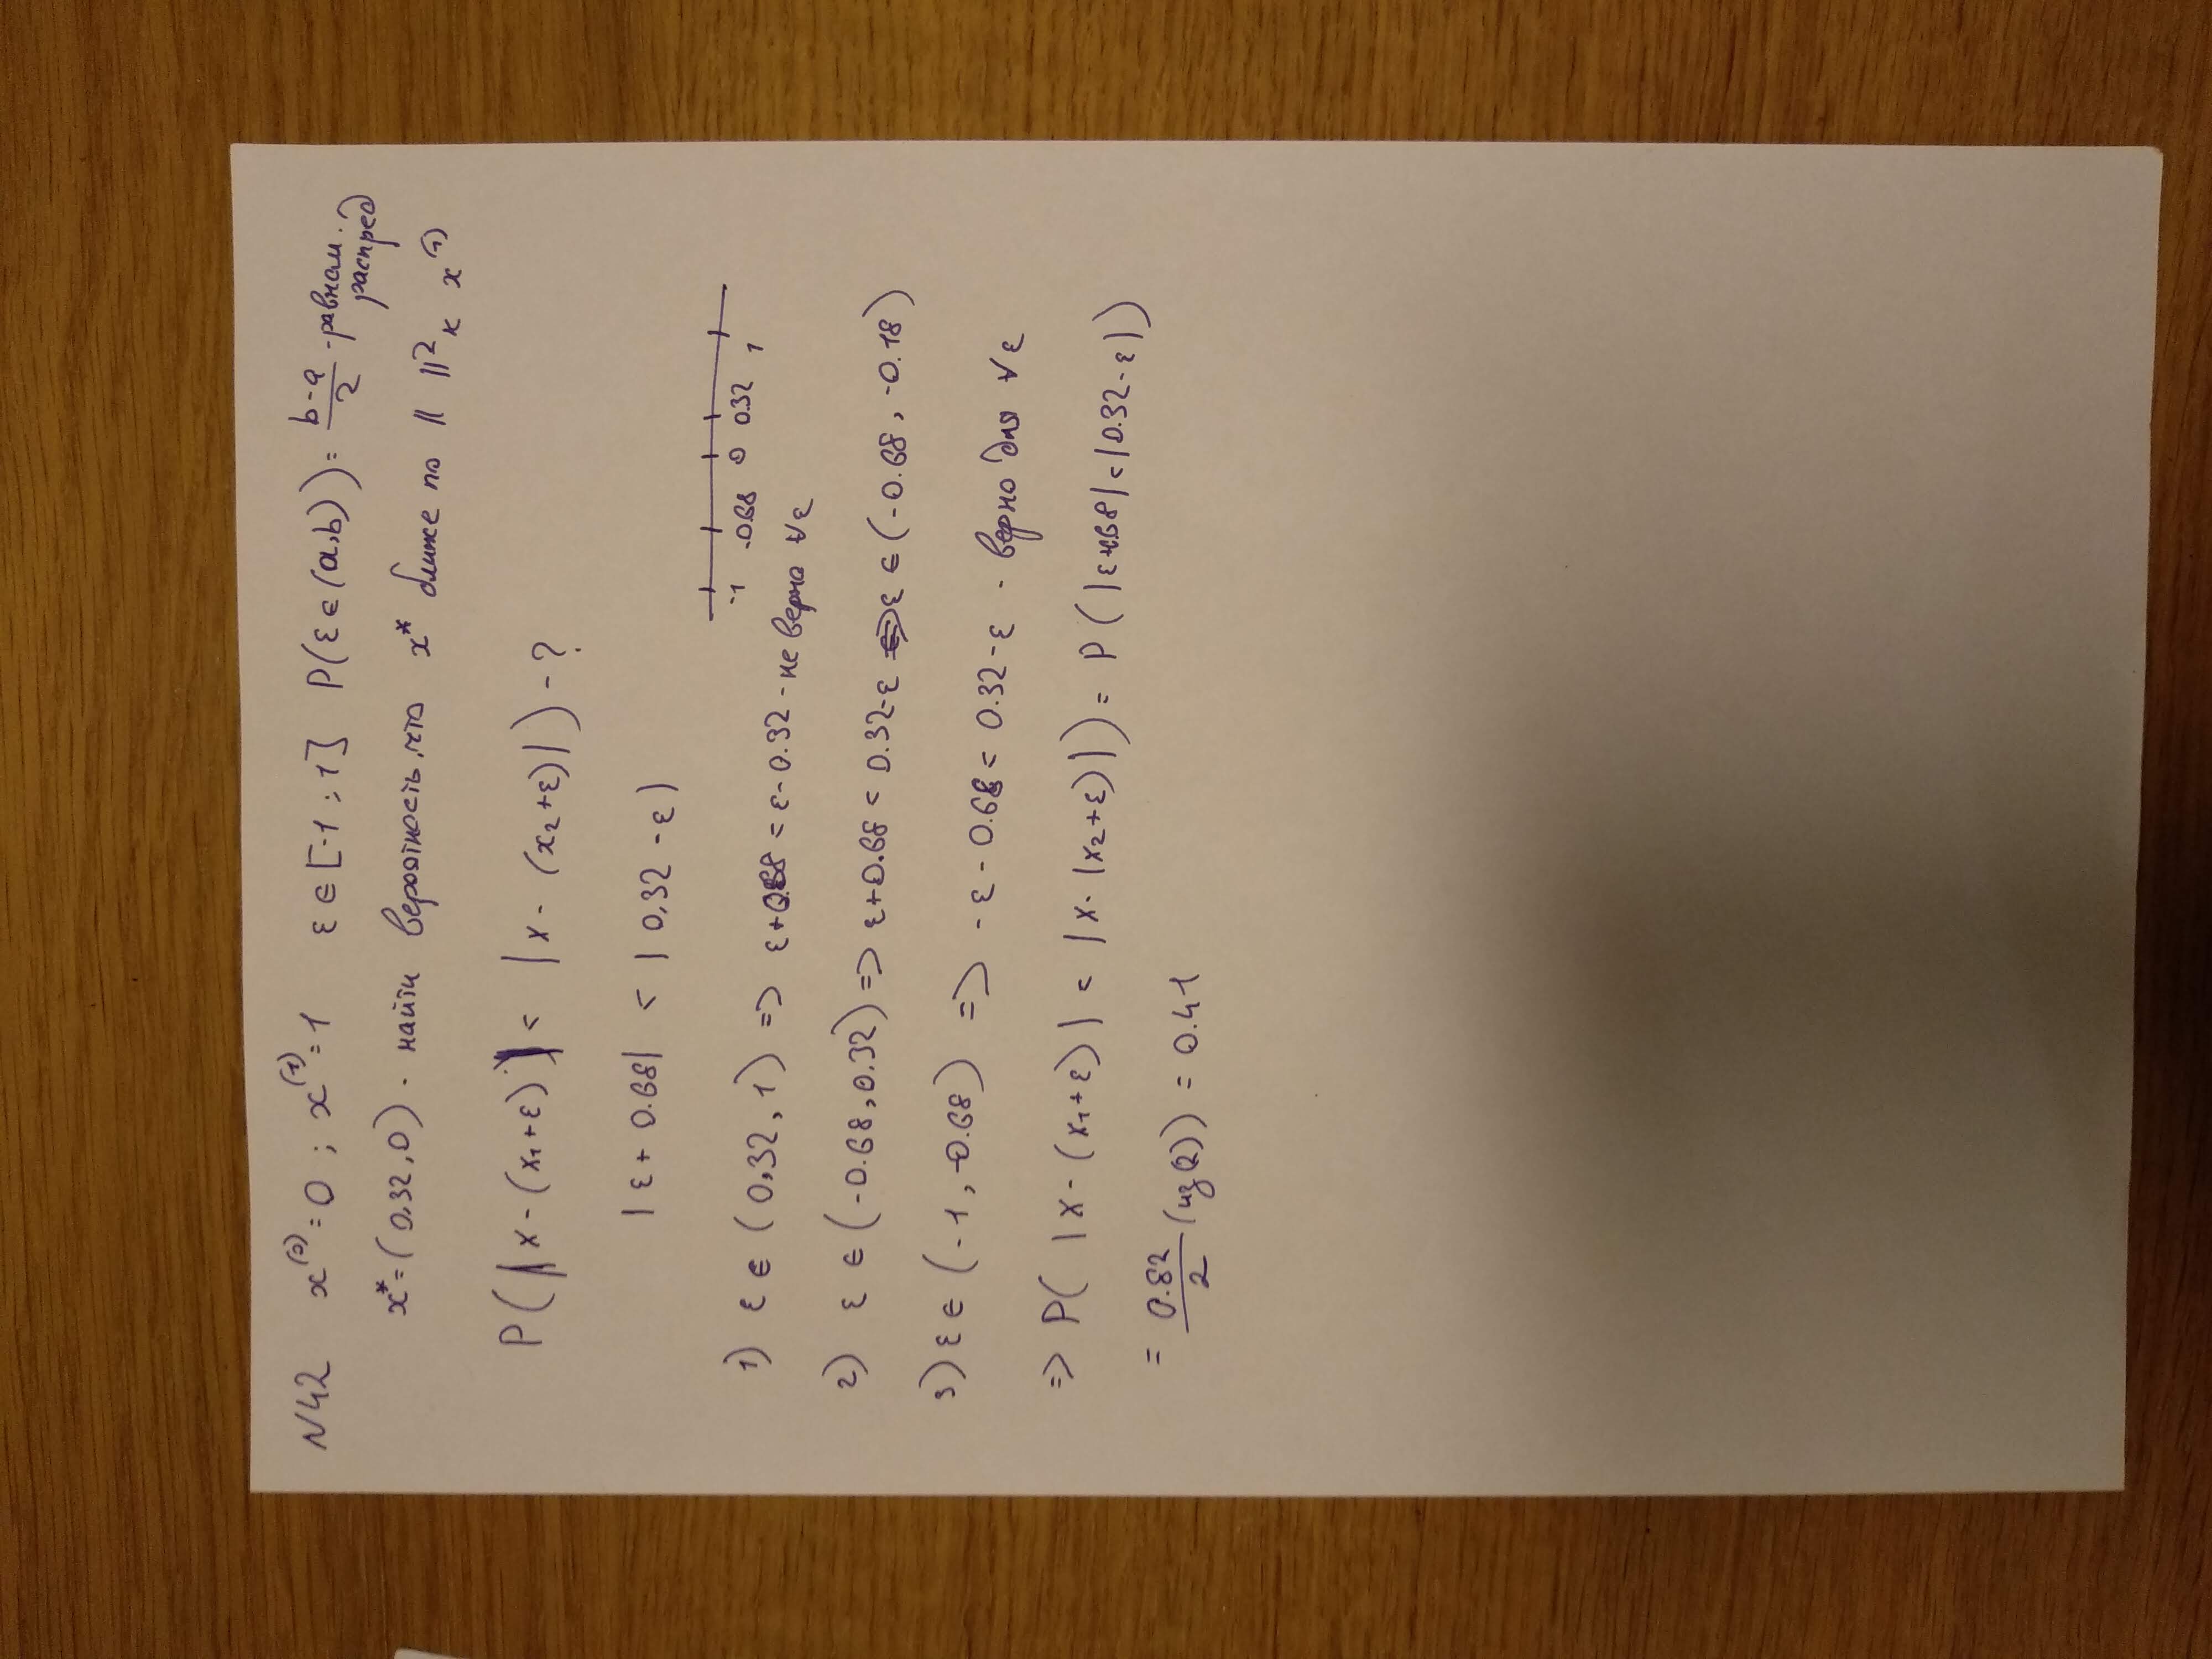 N42 x⁽⁰⁾=0 ; x⁽¹⁾=1 ε ∈ [-1 ; 1] P(ε ∈ (a,b)) = (b-a)/2 - равном. распред
x* = (0.32, 0) - найти вероятность, что x* ближе по || ||² к x⁽¹⁾
P(|x - (x₁+ε)| < |x - (x₂+ε)|) - ?
|ε + 0.68| < |0.32 - ε|
-1 -0.68 0 0.32 1
1) ε ∈ (0,32, 1) => ε+0.68 < ε-0.32 - не верно ∀ε
2) ε ∈ (-0.68, 0.32) => ε+0.68 < 0.32-ε => ε ∈ (-0.68, -0.18)
3) ε ∈ (-1, -0.68) => -ε - 0.68 < 0.32-ε - верно для ∀ε
=> P( |x - (x₁+ε)| < |x - |x₂+ε)|) = P(|ε+0.68| < |0.32-ε|)
= 0.82/2 (из(2)) = 0.41